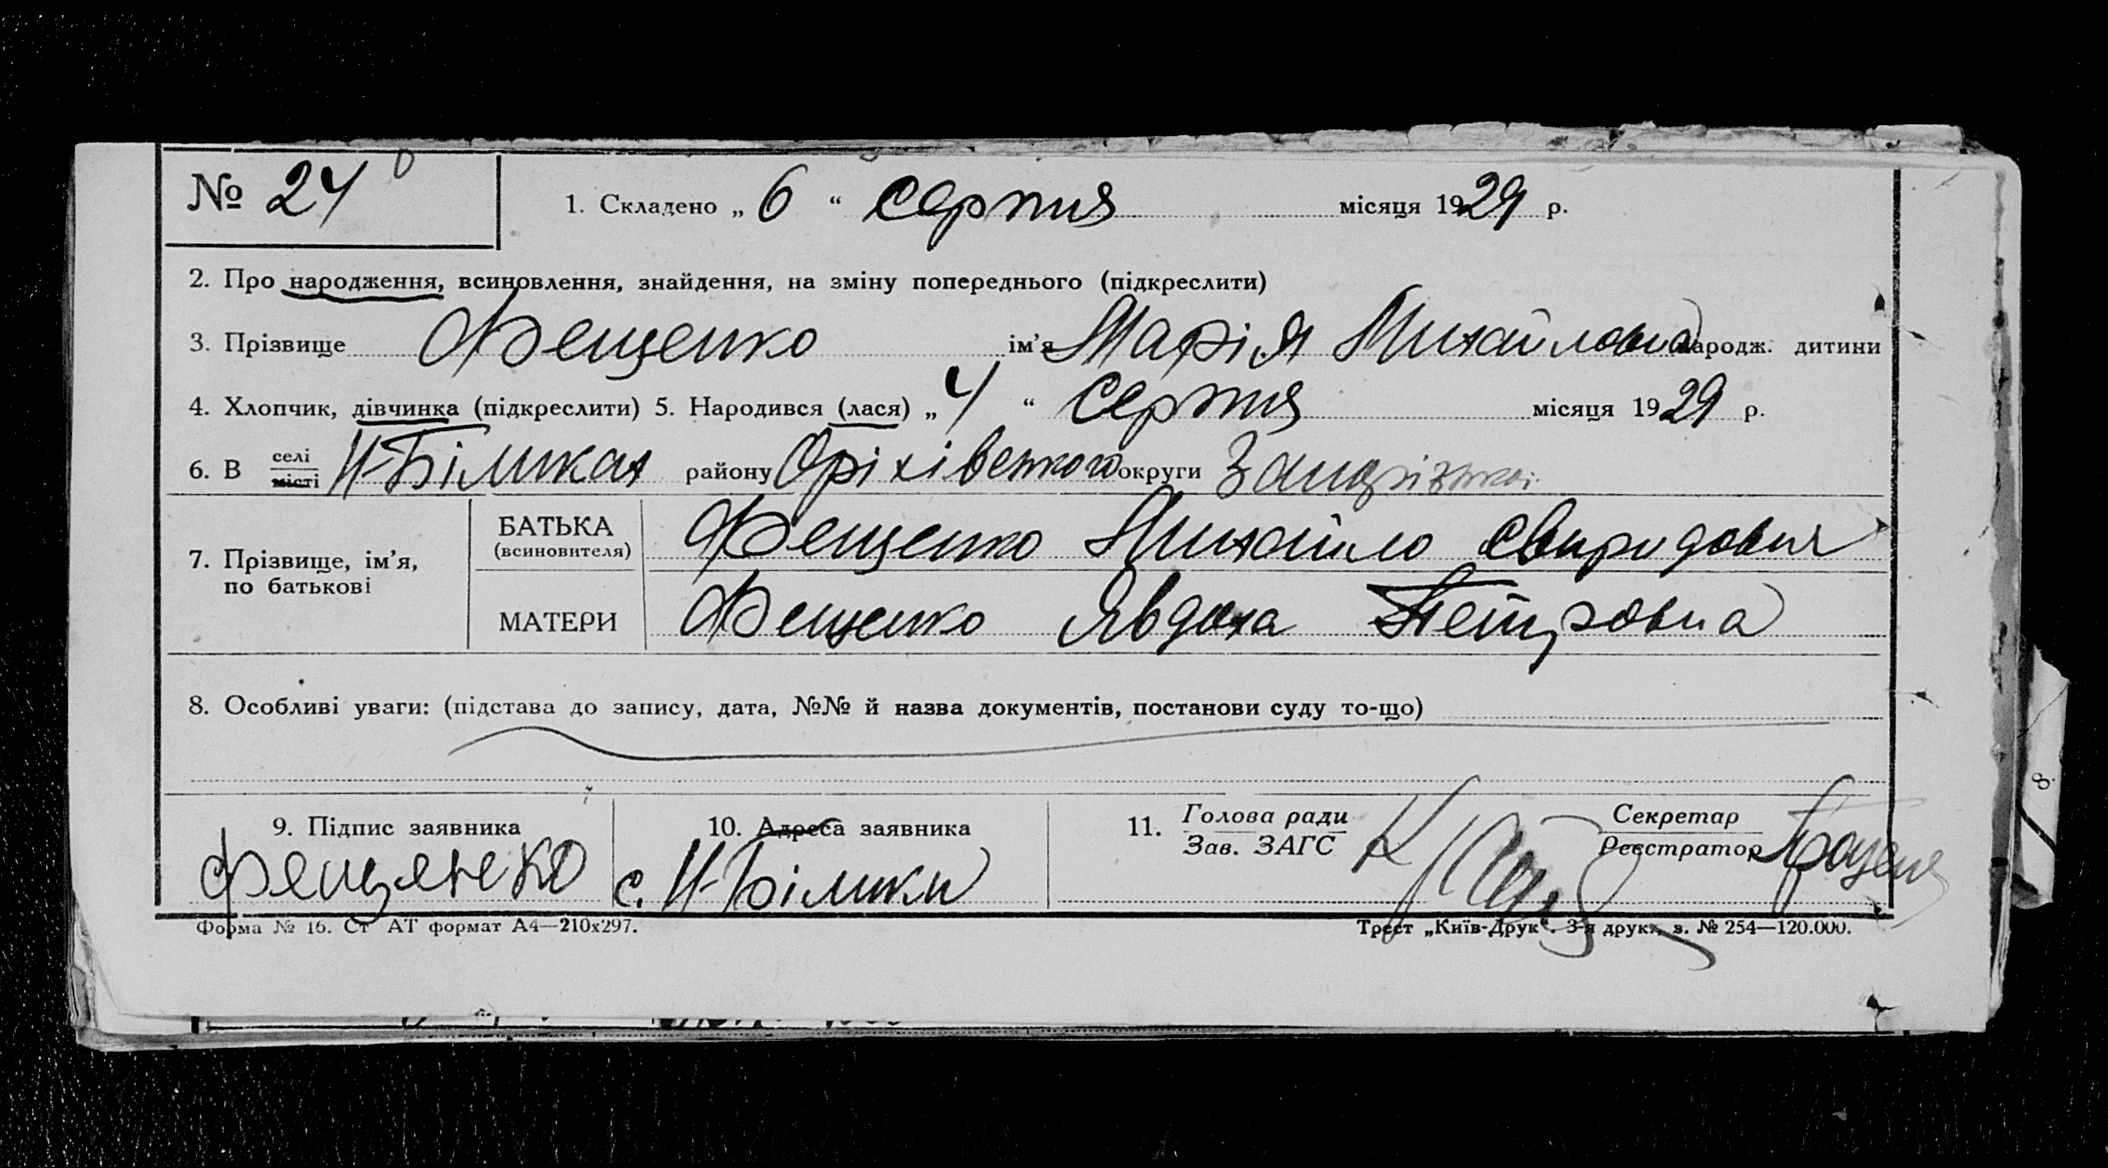 № 24 1. Складено „ 6 “ серпня місяця 1929 р.
2. Про народження, всиновлення, знайдення, на зміну попереднього (підкреслити)
3. Прізвище Фещенко ім'я Марія Михайловна народж. дитини
4. Хлопчик, дівчинка (підкреслити) 5. Народився (лася) „ 4 “ серпня місяця 1929 р.
6. В селі місті Н-Біликах району Оріхівського округи Запорізької
7. Прізвище, ім'я, по батькові
БАТЬКА (всиновителя) Фещенко Михайло Свиридович
МАТЕРИ Фещенко Явдоха Петровна
8. Особливі уваги: (підстава до запису, дата, №№ й назва документів, постанови суду то-що)
9. Підпис заявника 10. Адреса заявника 11. Голова ради Зав. ЗАГС Секретар Реєстратор
Фещенко с. Н-Білики
Форма № 16. Ст АТ формат А4—210х297. Трест „Київ-Друк“. 3-я друк., з. № 254—120.000.